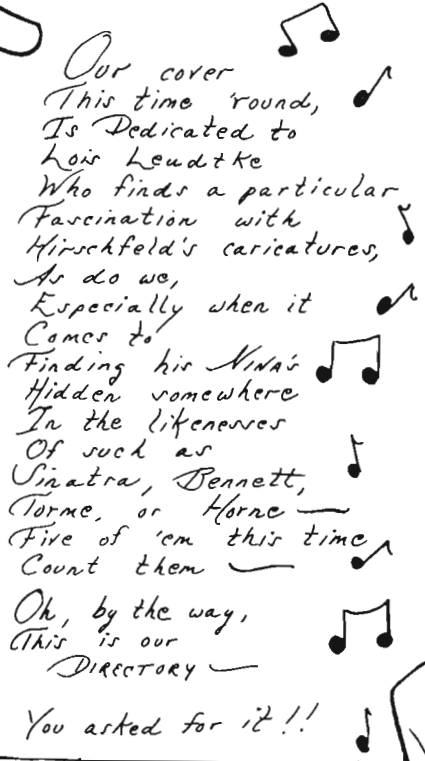 Our cover
This time 'round,
Is Dedicated to
Lois Leudtke
Who finds a particular
Fascination with
Hirschfeld's caricatures,
As do we,
Especially when it
Comes to
Finding his NINA's
Hidden somewhere
In the likenesses
Of such as
Sinatra, Bennett,
Torme, or Horne —
Five of 'em this time
Count them —
Oh, by the way,
This is our
DIRECTORY —
You asked for it!!